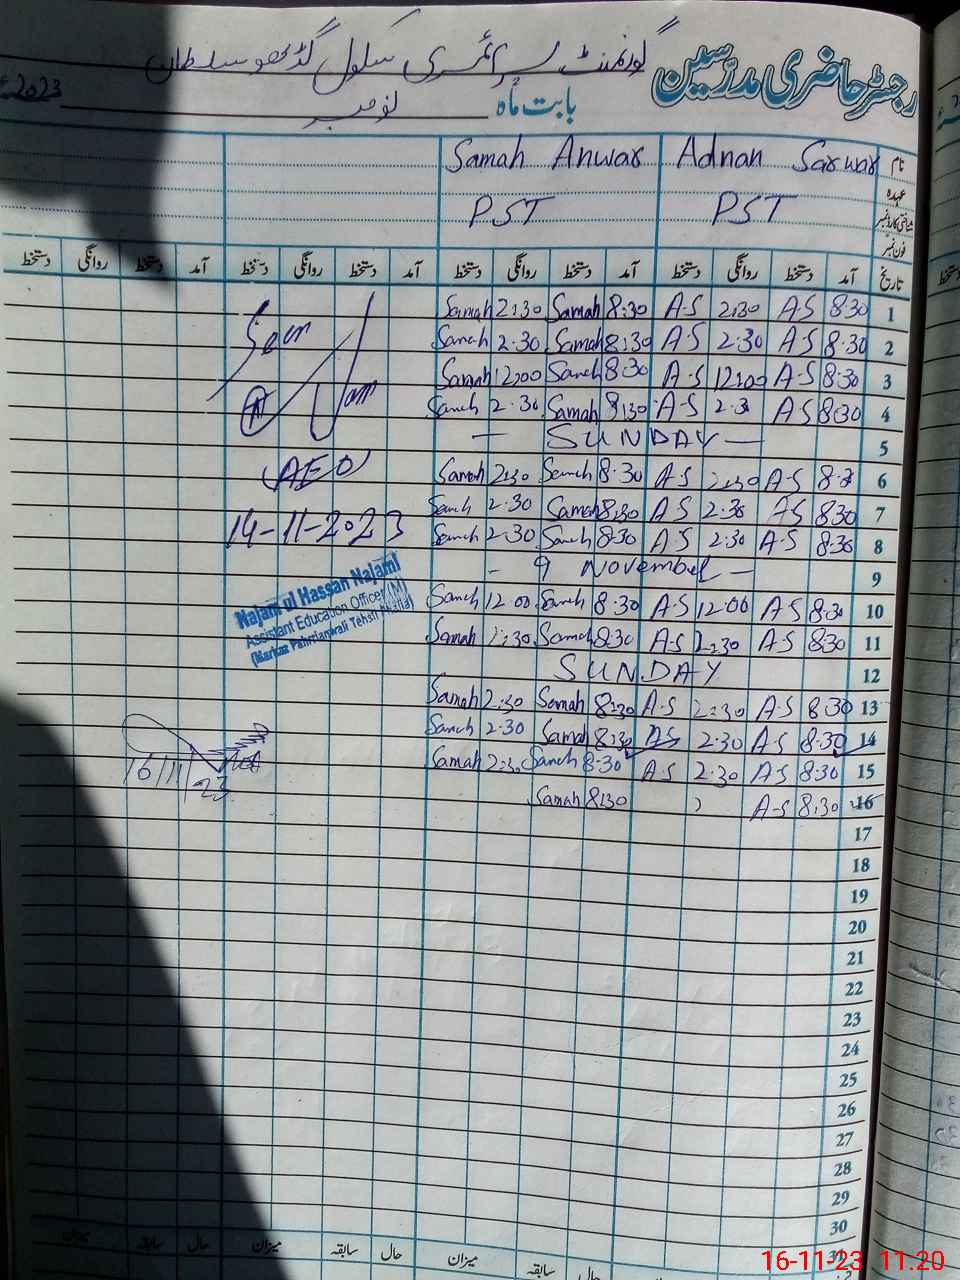 رجسٹر حاضری مدرسین گورنمنٹ پرائمری سکول گڈھو سلطان
بابت ماہ نومبر 2023ء
نام Adnan Sarwar Samah Anwar
عہدہ PST PST
شناختی کارڈ نمبر
فون نمبر
تاریخ آمد دستخط روانگی دستخط آمد دستخط روانگی دستخط آمد دستخط روانگی دستخط آمد دستخط روانگی دستخط
1 8:30 A-S 2:30 A-S 8:30 Samah 2:30 Samah
2 8:30 A-S 2:30 A-S 8:30 Samah 2:30 Samah
3 8:30 A-S 12:00 A-S 8:30 Samah 12:00 Samah
4 8:30 A-S 2:3 A-S 8:30 Samah 2:30 Samah
5 — SUNDAY —
6 8:3 A-S 2:30 A-S 8:30 Samah 2:30 Samah
7 8:30 A-S 2:30 A-S 8:30 Samah 2:30 Samah
8 8:30 A-S 2:30 A-S 8:30 Samah 2:30 Samah
9 - 9 November -
10 8:30 A-S 12:00 A-S 8:30 Samah 12:00 Samah
11 8:30 A-S 2:30 A-S 8:30 Samah 2:30 Samah
12 SUNDAY
13 8:30 A-S 2:30 A-S 8:30 Samah 2:30 Samah
14 8:30 A-S 2:30 A-S 8:30 Samah 2:30 Samah
15 8:30 A-S 2:30 A-S 8:30 Samah 2:30 Samah
16 8:30 A-S 8:30 Samah
17
18
19
20
21
22
23
24
25
26
27
28
29
30
31
Seen
(AEO)
14-11-2023
Najam ul Hassan Najami
Assistant Education Officer (M)
(Markaz Pahrianwali Tehsil Phalia)
16/11/23
حال سابقہ میزان حال سابقہ میزان حال سابقہ میزان
16-11-23 11.20